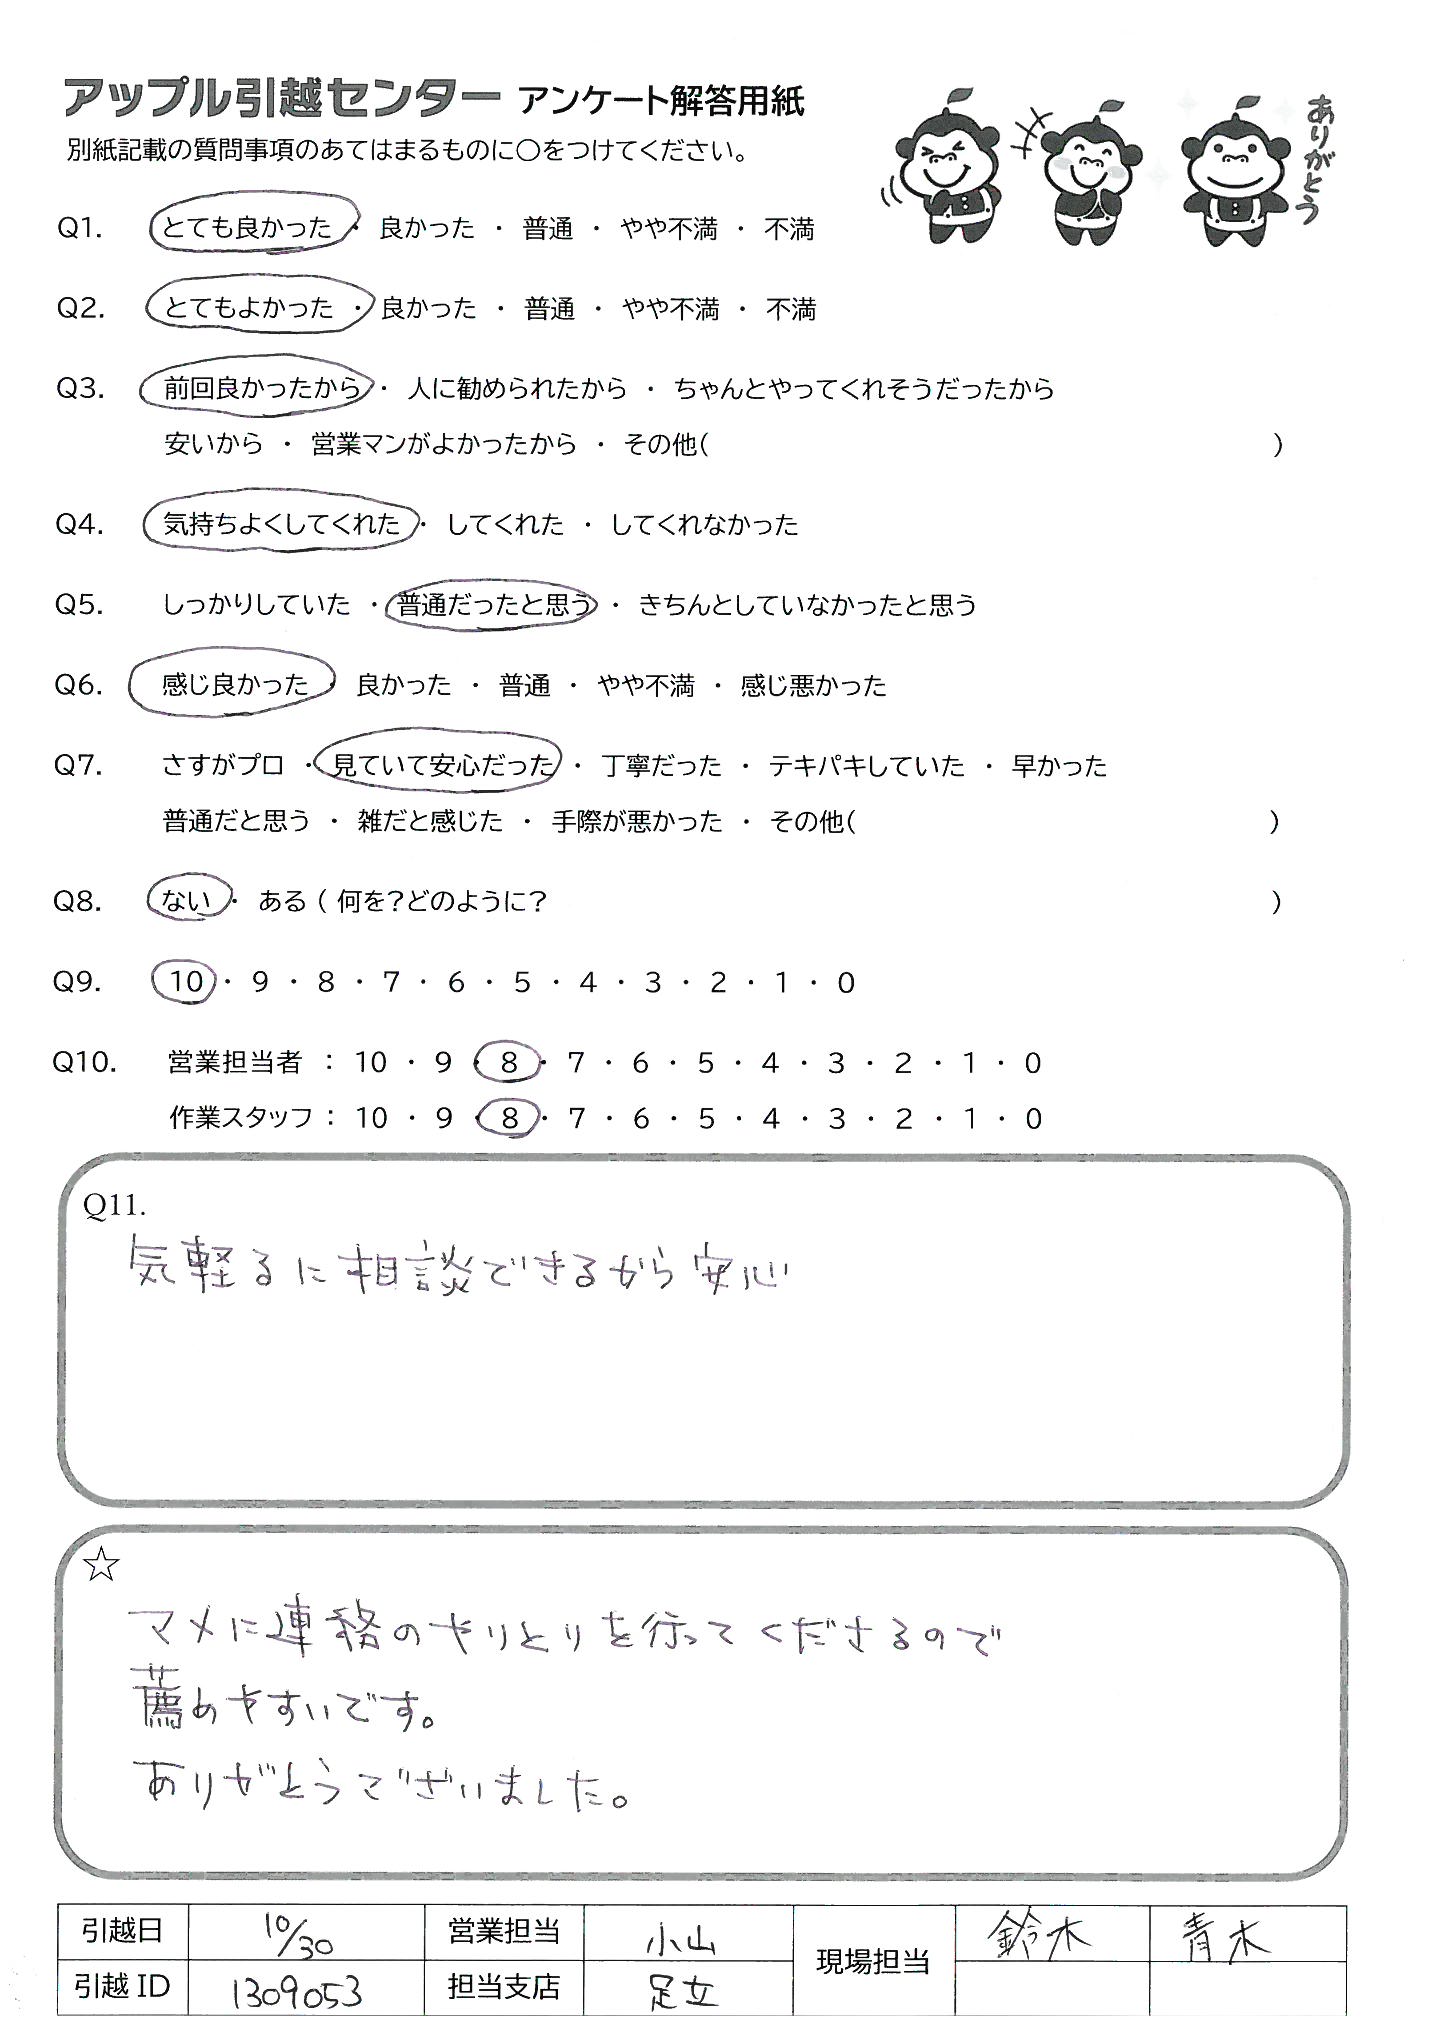 アップル引越センター アンケート解答用紙
別紙記載の質問事項のあてはまるものに○をつけてください。
ありがとう
Q1. とても良かった ・ 良かった ・ 普通 ・ やや不満 ・ 不満
Q2. とてもよかった ・ 良かった ・ 普通 ・ やや不満 ・ 不満
Q3. 前回良かったから ・ 人に勧められたから ・ ちゃんとやってくれそうだったから
安いから ・ 営業マンがよかったから ・ その他( )
Q4. 気持ちよくしてくれた ・ してくれた ・ してくれなかった
Q5. しっかりしていた ・ 普通だったと思う ・ きちんとしていなかったと思う
Q6. 感じ良かった ・ 良かった ・ 普通 ・ やや不満 ・ 感じ悪かった
Q7. さすがプロ ・ 見ていて安心だった ・ 丁寧だった ・ テキパキしていた ・ 早かった
普通だと思う ・ 雑だと感じた ・ 手際が悪かった ・ その他( )
Q8. ない ・ ある ( 何を?どのように? )
Q9. 10 ・ 9 ・ 8 ・ 7 ・ 6 ・ 5 ・ 4 ・ 3 ・ 2 ・ 1 ・ 0
Q10. 営業担当者 : 10 ・ 9 ・ 8 ・ 7 ・ 6 ・ 5 ・ 4 ・ 3 ・ 2 ・ 1 ・ 0
作業スタッフ : 10 ・ 9 ・ 8 ・ 7 ・ 6 ・ 5 ・ 4 ・ 3 ・ 2 ・ 1 ・ 0
Q11.
気軽るに相談できるから安心
☆
マメに連絡のやりとりを行ってくださるので
薦めやすいです。
ありがとうございました。
引越日 10/30 営業担当 小山 現場担当 鈴木 青木
引越ID 1309053 担当支店 足立